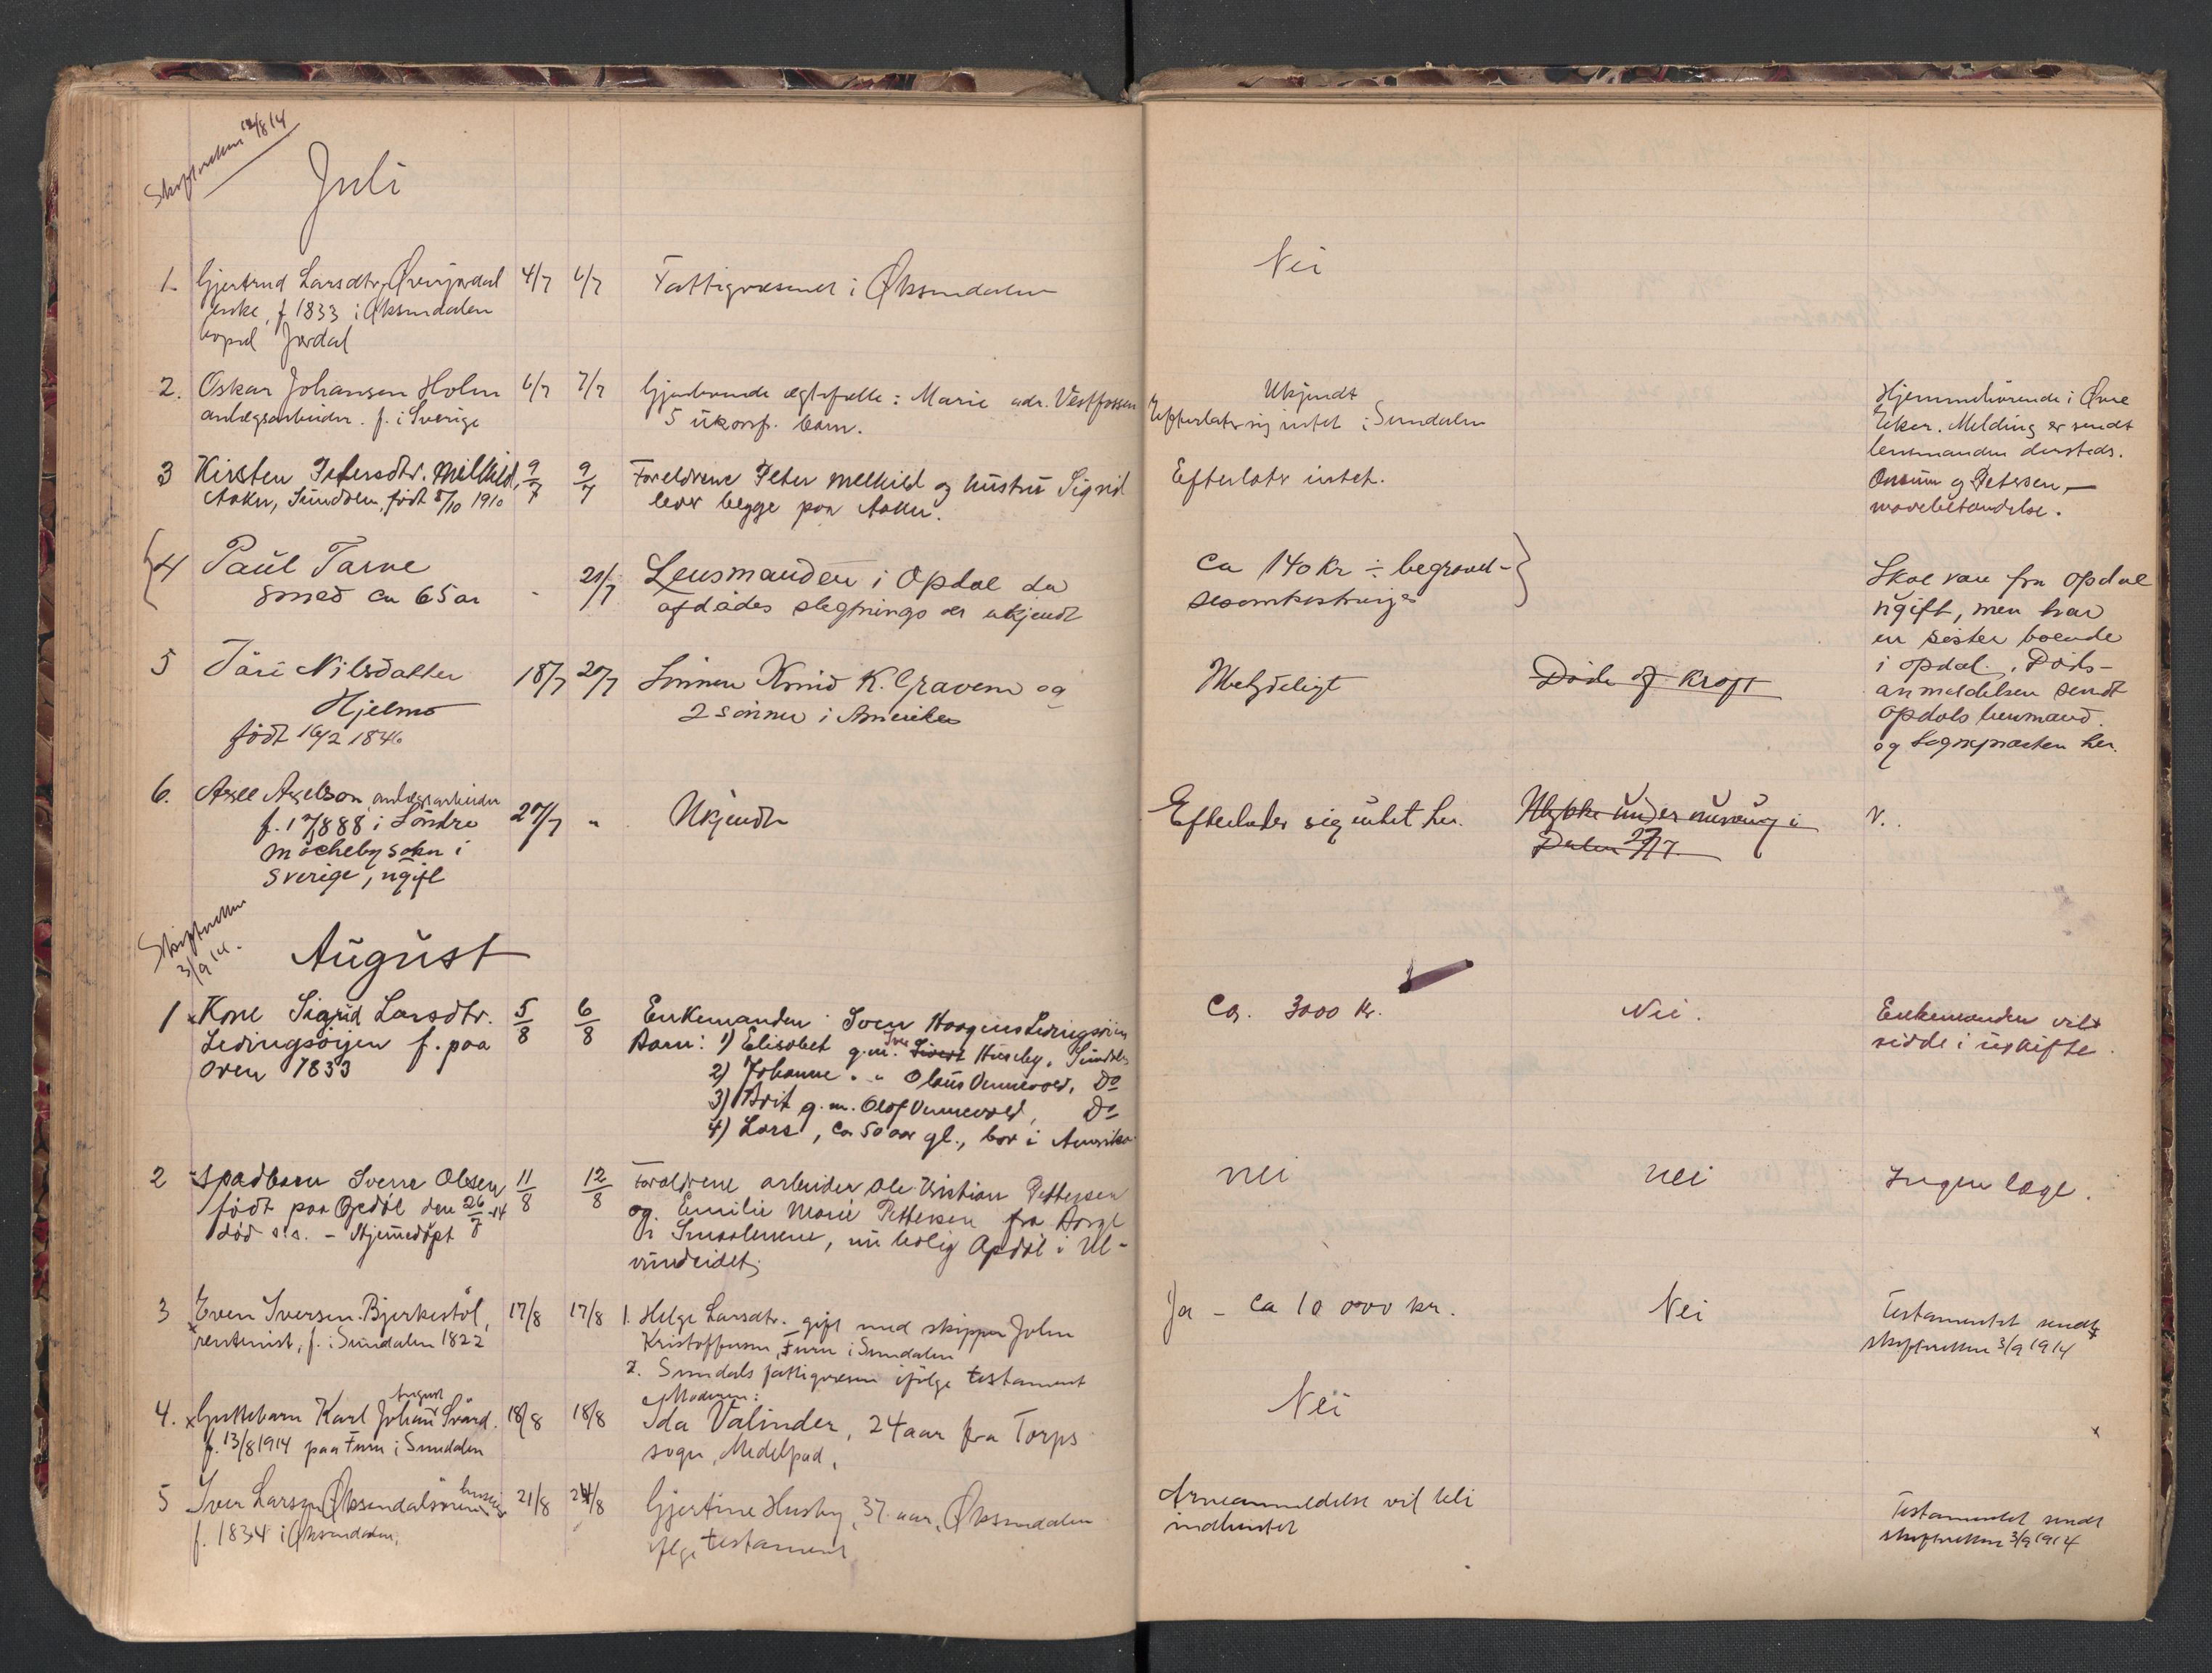 Skifteretten 12/8 14
Juli
1. Gjertrud Larsdtr. Øverjordal 4/7 6/7 Fattigvæsenet i Øksendalen Nei
enke, f. 1833 i Øksendalen
bopæl Jordal
2. Oskar Johansen Holm 6/7 7/7 Gjenlevende ægtefælle: Marie adr. Vestfossen Ukjendt Hjemmehörende i Øvre
anlægsarbeider. f. i Sverige 5 ukonf. barn. Efterlater sig intet i Sundalen Eker. Melding er sendt
lensmanden dersteds.
3 Kirsten Petersdtr. Melkild, 9/7 9/7 Foreldrene Peter Melkild og hustru Sigrid Efterlater intet. Onsum og Petersen, —
Aaker, Sundalen, født 5/10 1910 lever begge paa Aaker. mavebetændelse.
4 Paul Tarve - 21/7 Lensmanden i Opdal da ca 140 kr ÷ begravel- Skal være fra Opdal
Smed ca 65 ar afdødes slegtninge er ukjendt sesomkostninger ugift, men har
en søster boende
5 Täri Nilsdatter 18/7 20/7 Sønnen Knud K. Gravem og Ubetydeligt Døde af Kræft i Opdal. Døds-
Hjelmo 2 sønner i Amerika anmeldelsen sendt
født 16/2 1846 Opdals lensmand.
og Sognepræsten her.
6. Axel Axelson, anlægsarbeider 27/7 " Ukjendt Efterlater sig intet her. Ulykke under minering i
f. 1888 i Söndre Dalen 27/7.
Möcheby sokn i
Sverige, ugift
Skifteretten
3/9 14.
August
1 Kone Sigrid Larsdtr. 5/8 6/8 Enkemanden Sven Haagens Ledingsøien Ca. 3000 kr. Nei. Enkemanden vil
Ledingsøijen f. paa Barn: 1) Elisabet g.m. Sivert Iver Huseby, Sundalen sidde i uskifte.
Øren 1833 2) Johanne " " Olaus Vennevold, Do
3) Brit g. m. Olaf Vennevold, Do
4) Lars, ca 50 aar gl., bor i Amerika
2 Spædbarn Sverre Olsen 11/8 12/8 Forældrene arbeider Ole Kristian Pettersen nei nei Ingen læge.
født paa Opdöl den 26/7-14 og Emilie Marie Pettersen fra Borge
död s.s. - Hjemmedöpt i Smaalenene, nu bolig Opdöl i Ul-
vundeidet,
3 Even Iversen Bjerkestöl, 17/8 17/8 1. Helge Larsdtr. gift med skipper John Ja - ca 10 000 kr. Nei Testamentet sendt
rentenist, f. i Sundalen 1822 Kristoffersen, Furu i Sundalen skifteretten 3/9 1914
2. Sundals fattigvæsen ifölge testament
Moderen:
4. Guttebarn Karl Johan August Svärd. 18/8 18/8 Ida Valinder, 24 aar fra Torps Nei
f. 13/8 1914 paa Furu i Sundalen sogn, Medelpad,
5 Iver Larsen Øksendalsøren 21/8 24/8 Gjertine Husby, 37 aar, Øksendalen Arveanmeldelse vil bli Testamentet sendt
f. 1834 i Øksendalen, ifølge testament indhentet skifteretten 3/9 1914